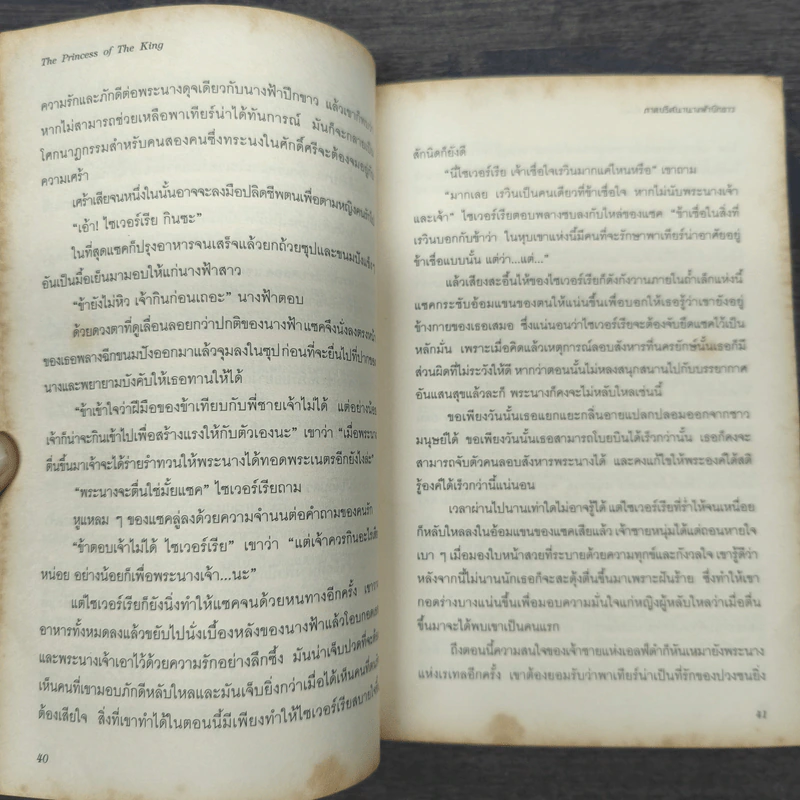 The Princess of The King
ความรักและภักดีต่อพระนางดุจเดียวกับนางฟ้าปีกขาว แล้วเขาก็
หากไม่สามารถช่วยเหลือพาเทียร์น่าได้ทันการณ์ มันก็จะกลายเป็น
โศกนาฏกรรมสำหรับคนสองคนซึ่งทระนงในศักดิ์ศรีจะต้องจมอยู่กับ
ความเศร้า
เศร้าเสียจนหนึ่งในนั้นอาจจะลงมือปลิดชีพตนเพื่อตามหญิงคน
“เอ้า! ไซเวอร์เรีย กินซะ”
ในที่สุดแซคก็ปรุงอาหารจนเสร็จแล้วยกถ้วยซุปและขนมปังแข็งๆ
อันเป็นมื้อเย็นมามอบให้แก่นางฟ้าสาว
“ข้ายังไม่หิว เจ้ากินก่อนเถอะ” นางฟ้าตอบ
ด้วยดวงตาที่ดูเลื่อนลอยกว่าปกติของนางฟ้า แซคจึงนั่งลงตรงหน้า
ของเธอพลางฉีกขนมปังออกมาแล้วจุ่มลงในซุป ก่อนที่จะยื่นไปที่ปากของ
นางและพยายามบังคับให้เธอทานให้ได้
“ข้าเข้าใจว่าฝีมือของข้าเทียบกับพี่ชายเจ้าไม่ได้ แต่อย่างน้อย
เจ้าก็น่าจะกินเข้าไปเพื่อสร้างแรงให้กับตัวเองนะ” เขาว่า “เมื่อพระนาง
ตื่นขึ้นมาเจ้าจะได้ร่ายรำทวนให้พระนางได้ทอดพระเนตรอีกยังไงล่ะ”
“พระนางจะตื่นใช่มั้ยแซค” ไซเวอร์เรียถาม
หูแหลม ๆ ของแซคลู่ลงด้วยความจำนนต่อคำถามของคนรัก
“ข้าตอบเจ้าไม่ได้ ไซเวอร์เรีย” เขาว่า “แต่เจ้าควรกินอะไรสัก
หน่อย อย่างน้อยก็เพื่อพระนางเจ้า...นะ”
แต่ไซเวอร์เรียก็ยังนิ่งทำให้แซคจนด้วยหนทางอีกครั้ง เขาวาง
อาหารทั้งหมดลงแล้วขยับไปนั่งเบื้องหลังของนางฟ้าแล้วโอบกอด
และพระนางเจ้าเอาไว้ด้วยความรักอย่างลึกซึ้ง มันน่าเจ็บปวดที่จะต้อง
เห็นคนที่เขามอบภักดีหลับใหลและมันเจ็บยิ่งกว่าเมื่อได้เห็นคนที่ตน
ต้องเสียใจ สิ่งที่เขาทำได้ในตอนนี้มีเพียงทำให้ไซเวอร์เรียสบายใจขึ้น
40
ภาคปริศนานางฟ้าปีกขาว
สักนิดก็ยังดี
“นี่ไซเวอร์เรีย เจ้าเชื่อใจเรวินมากแค่ไหนหรือ” เขาถาม
“มากเลย เรวินเป็นคนเดียวที่ข้าเชื่อใจ หากไม่นับพระนางเจ้า
และเจ้า” ไซเวอร์เรียตอบพลางซบลงกับไหล่ของแซค “ข้าเชื่อในสิ่งที่
เรวินบอกกับข้าว่า ในหุบเขาแห่งนี้มีคนที่จะรักษาพาเทียร์น่าอาศัยอยู่
ข้าเชื่อแบบนั้น แต่ว่า...แต่...”
แล้วเสียงสะอื้นไห้ของไซเวอร์เรียก็ดังกังวานภายในถ้ำเล็กแห่งนี้
แซคกระชับอ้อมแขนของตนให้แน่นขึ้นเพื่อบอกให้เธอรู้ว่าเขายังอยู่
ข้างกายของเธอเสมอ ซึ่งแน่นอนว่าไซเวอร์เรียจะต้องจับยึดแซคไว้เป็น
หลักมั่น เพราะเมื่อคิดแล้วเหตุการณ์ลอบสังหารที่นครยักษ์นั้นเธอก็มี
ส่วนผิดที่ระวังให้ดี หากว่าตอนนั้นไม่หลงสนุกสนานไปกับบรรยากาศ
อันแสนสุขแล้วละก็ พระนางก็คงจะไม่หลับใหลเช่นนี้
ขอเพียงวันนั้นเธอแยกแยะกลิ่นอายแปลกปลอมออกจากชาว
มนุษย์ได้ ขอเพียงวันนั้นเธอสามารถโบยบินได้เร็วกว่านั้น เธอก็คงจะ
สามารถจับตัวคนลอบสังหารพระนางได้ และคงแก้ไขให้พระองค์ได้สติ
รู้องค์ได้เร็วกว่านี้แน่นอน
เวลาผ่านไปนานเท่าใดไม่อาจรู้ได้ แต่ไซเวอร์เรียที่ร่ำไห้จนเหนื่อย
ก็หลับใหลลงในอ้อมแขนของแซคเสียแล้ว เจ้าชายหนุ่มได้แต่ถอนหายใจ
เบา ๆ เมื่อมองใบหน้าสวยที่ระบายด้วยความทุกข์และกังวลใจ เขารู้ดีว่า
หลังจากนี้ไม่นานนักเธอก็จะสะดุ้งตื่นขึ้นมาเพราะฝันร้าย ซึ่งทำให้เขา
กอดร่างบางแน่นขึ้นเพื่อมอบความมั่นใจแก่หญิงผู้หลับใหลว่าเมื่อตื่น
ขึ้นมาจะได้พบเขาเป็นคนแรก
ถึงตอนนี้ความสนใจของเจ้าชายแห่งเอลฟ์ดำก็หันเหมายังพระนาง
แห่งเรเทลอีกครั้ง เขาต้องยอมรับว่าพาเทียร์น่าเป็นที่รักของปวงชนยิ่ง
41